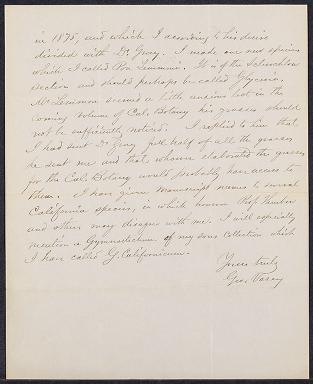 in 1875, and which I according to his desire
divided with Dr. Gray. I made one new species
which I called Poa Lemmoni. It is of the
section and should perhaps be called Glyceria.
Mr Lemmon seemed a little anxious lest in the
coming volume of Cal. Botany his grasses should
not be sufficiently noticed. I replied to him that
I had sent Dr Gray full half of all the grasses
he sent me and that whoever elaborated the grasses
for the Cal. Botany would probably have access to
them. I have given manuscript names to several
California species, in which however Prof Thurber
and others may disagree with me. I will especially
mention a Gymnostichum of my sons collection which
I have called G. Californicum.
Yours truly
Geo. Vasey